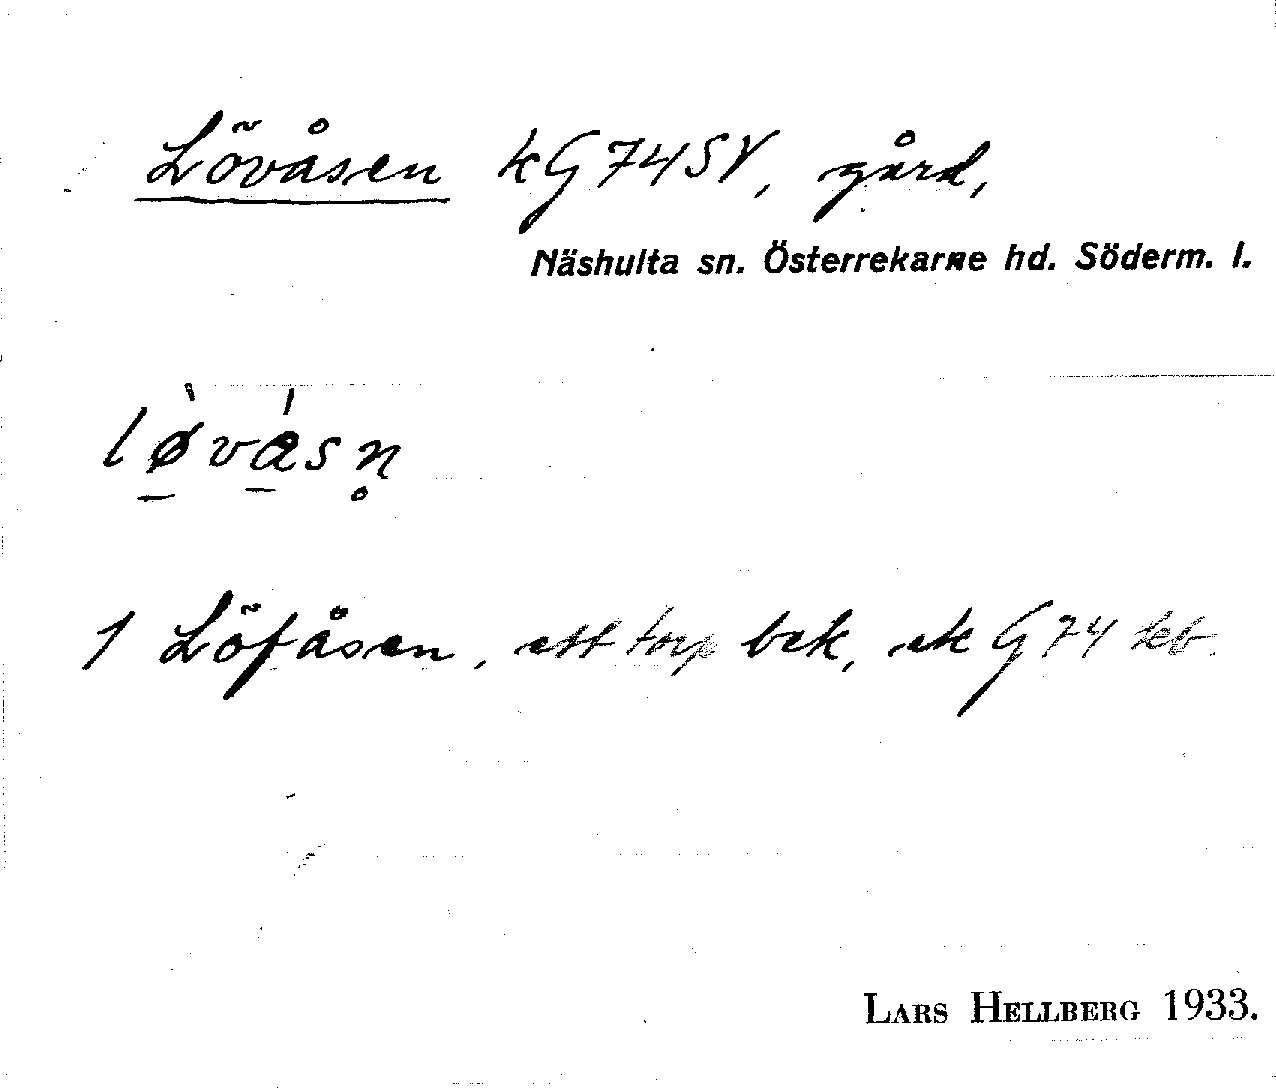 Lövåsen kG74SV, gård,
Näshulta sn. Österrekarne hd. Söderm. l.
lø̠̀vá̠sn̥
1 Löfåsen, ett torp bek, ek G74
LARS HELLBERG 1933.